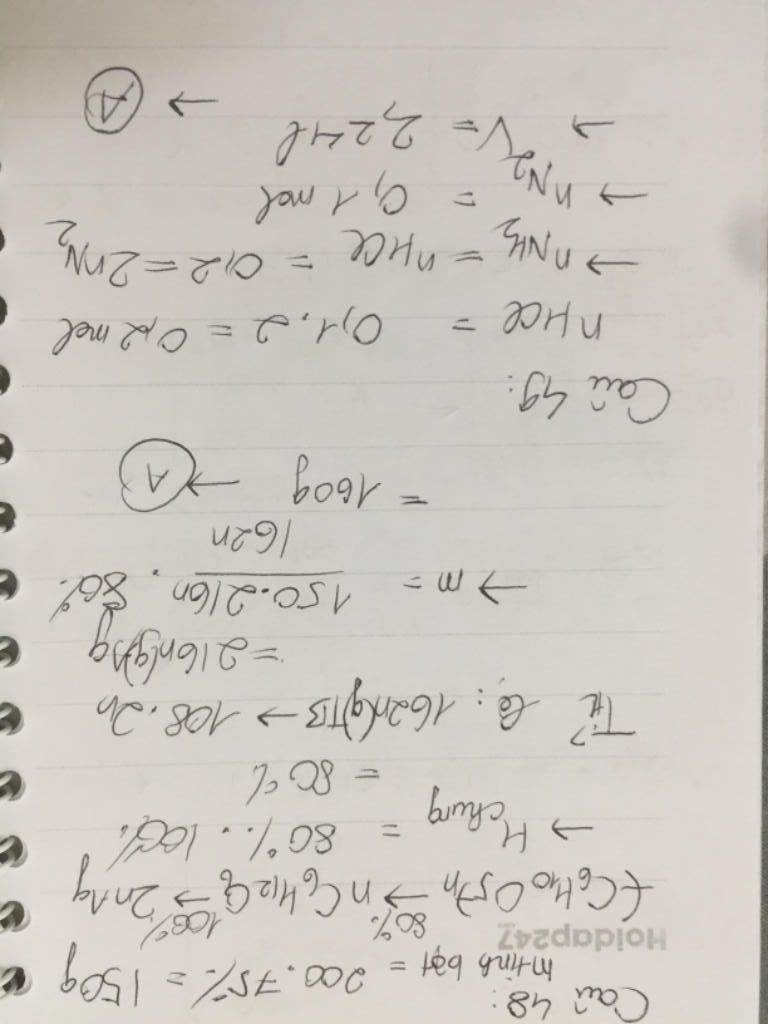 Câu 48:
m tinh bột = 200.75% = 150g
Hoidap247
80% 100%
(C6H10O5)n → nC6H12O6 → 2nAg
→ Hchung = 80%.100%
= 80%
Tỉ lệ: 162n(g)TB → 108.2n
= 216n(g)Ag
→ m = 150.216n / 162n . 80%
= 160g → A
Câu 49:
nHCl = 0,1.2 = 0,2 mol
→ nNH2 = nHCl = 0,2 = 2nN2
→ nN2 = 0,1 mol
→ V = 2,24l
→ A